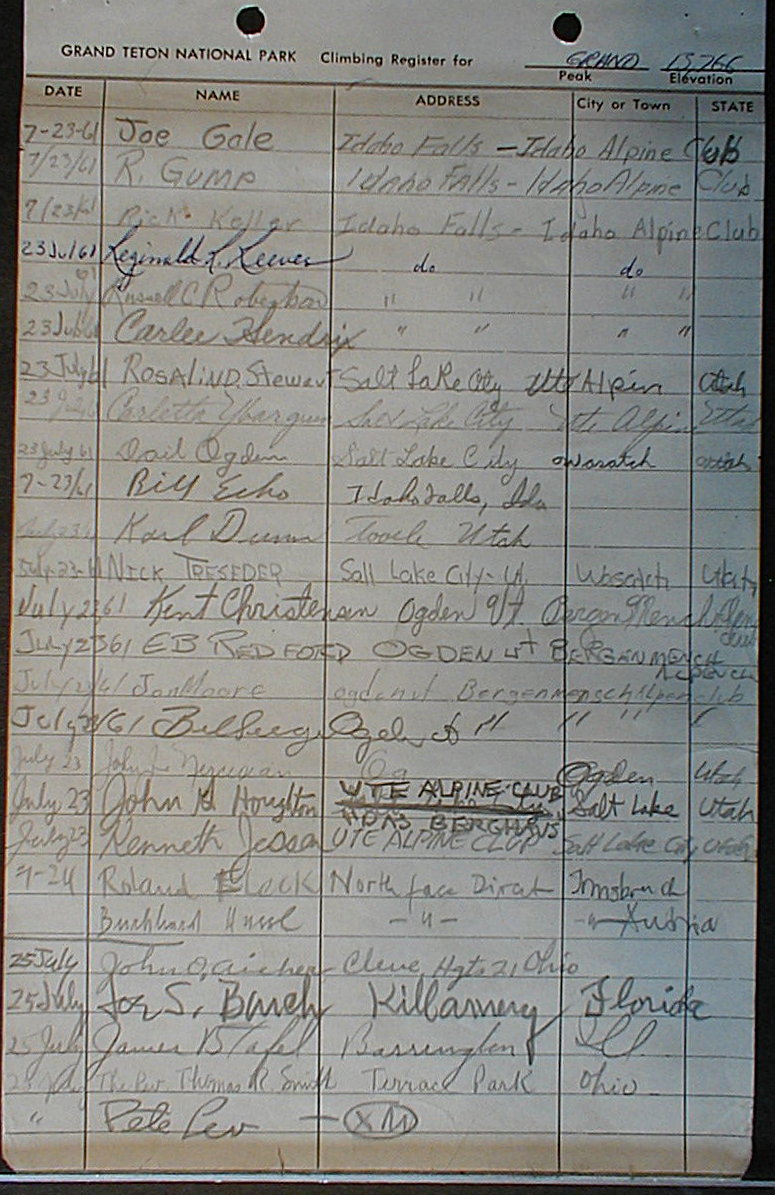 GRAND TETON NATIONAL PARK Climbing Register for GRAND 13,766
Peak Elevation
DATE NAME ADDRESS City or Town STATE
7-23-61 Joe Gale Idaho Falls - Idaho Alpine Club
7/23/61 R. GUMP Idaho Falls - Idaho Alpine Club
7/23/61 Rick Keller Idaho Falls - Idaho Alpine Club
23 Jul 61 Reginald R. Reeves do do
23 July 61 Russell C Robertson " " " "
23 July 61 Carlee Hendrix " " " "
23 July 61 ROSALIND Stewart Salt Lake City Ute Alpin Utah
23 July Carletta Salt Lake City Ute Alpin Utah
23 July 61 Gail Ogden Salt Lake City Wasatch Utah
7-23/61 Bill Echo Idaho Falls, Ida
Karl Dunn Tooele Utah
July-23-61 NICK TRESEDER Salt Lake City - Ut. Wasatch Utah
July 23 61 Kent Christensen Ogden Ut.
July 23 61 EB REDFORD OGDEN UT BERGENMENCH
July 23/61 Jon Moore Ogden ut Bergenmenschalpen club
July 23/61 " " " "
July 23 John Ogden Utah
UTE ALPINE CLUB
July 23 John Houghton Salt Lake Utah
BERGHAUS
July 23 Kenneth UTE ALPINE CLUB Salt Lake City Utah
7-24 Roland North face Direct Innsbruck
Burkhard - " - - " - Austria
25 July John O. Cleve. Hgts 21 Ohio
25 July Joe S. Killarney Florida
25 July James B Tafel Barrington Ill
25 July The Rev. Thomas R Smith Terrace Park Ohio
" Pete Lev - XM